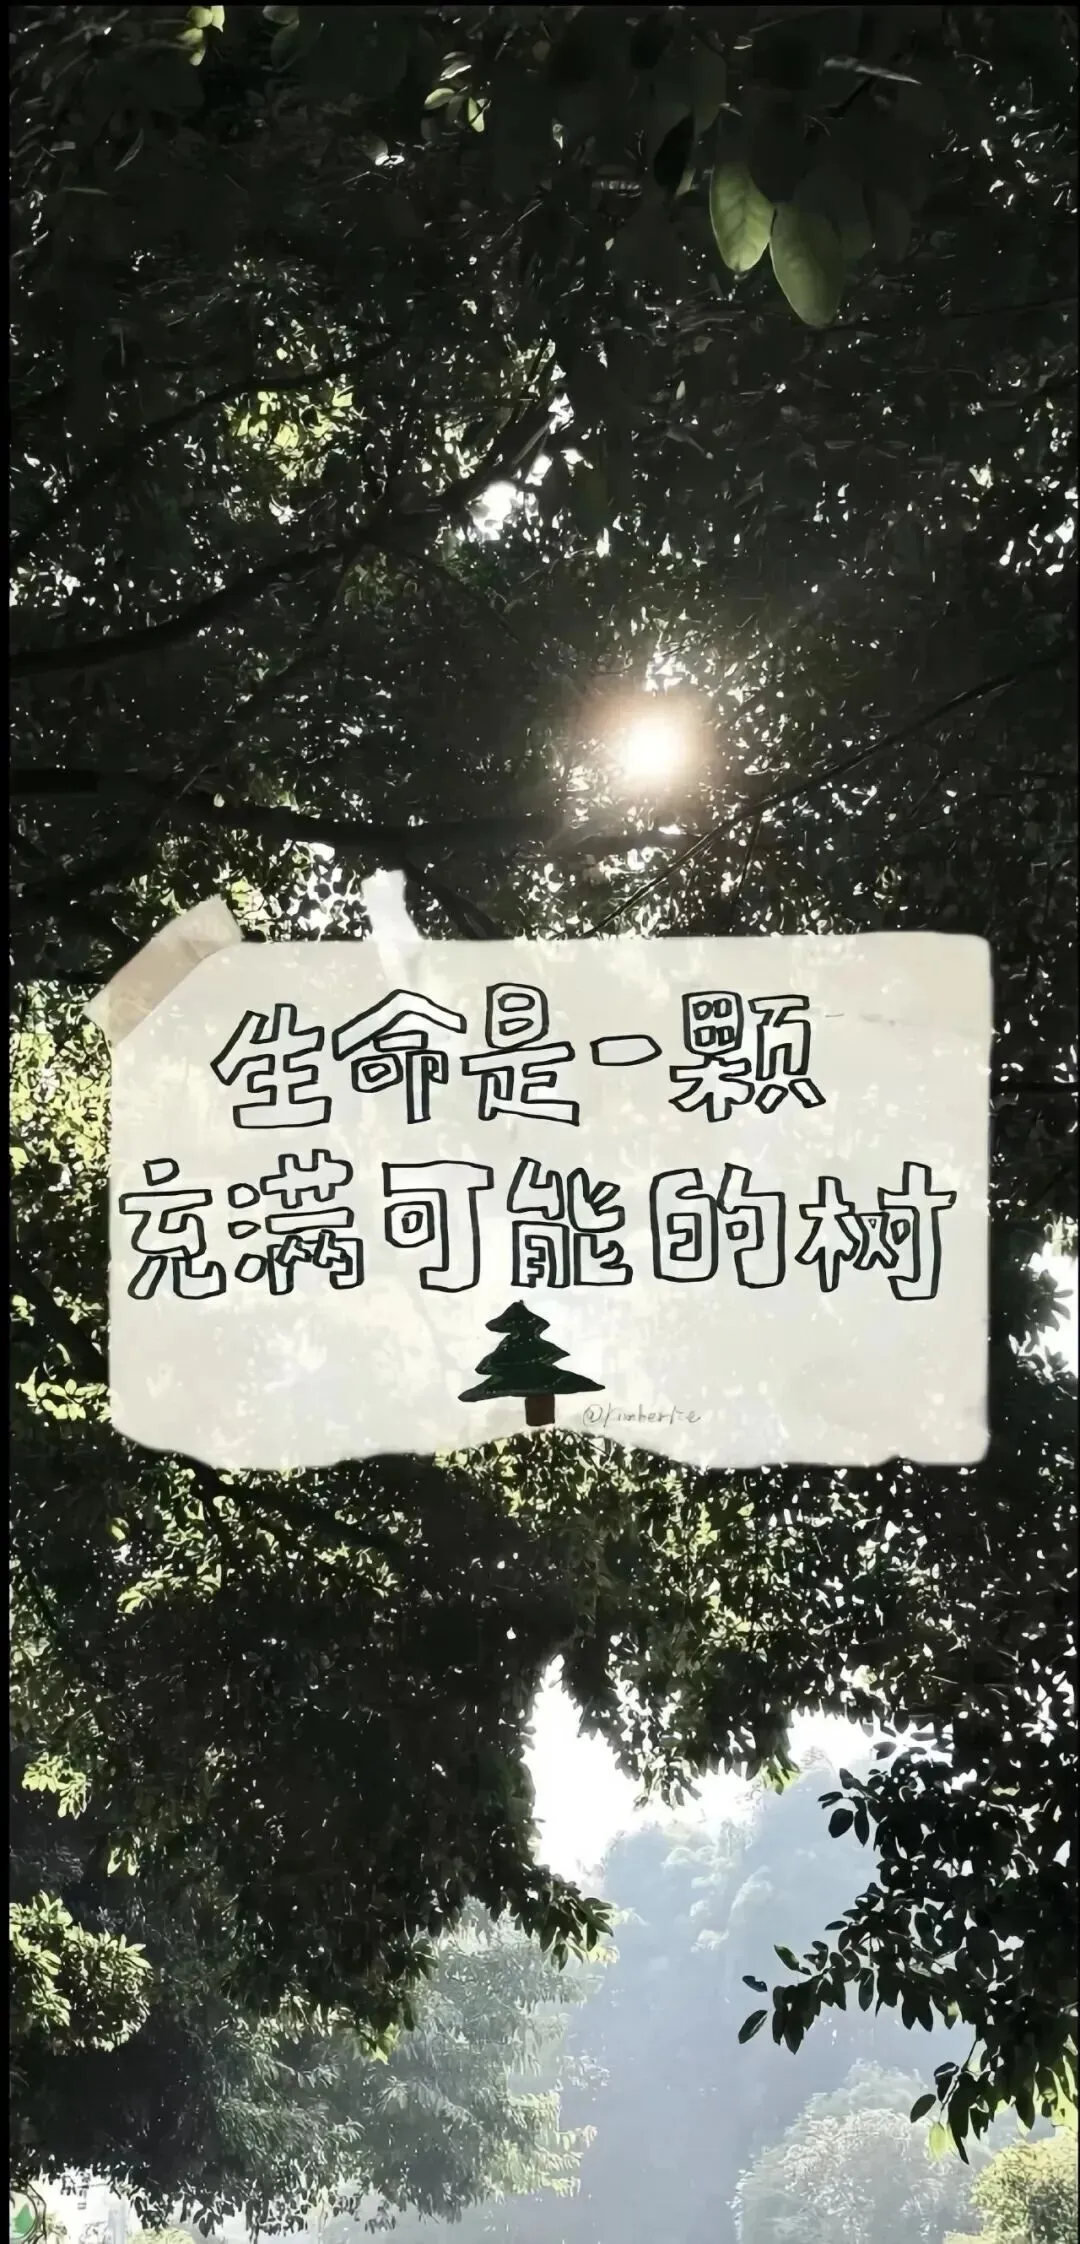 生命是一颗
充满可能的树